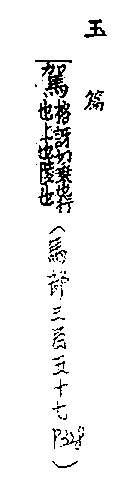 玉篇
駕格訝切乘也行
也上也陵也
(馬部三百五十七
P328)